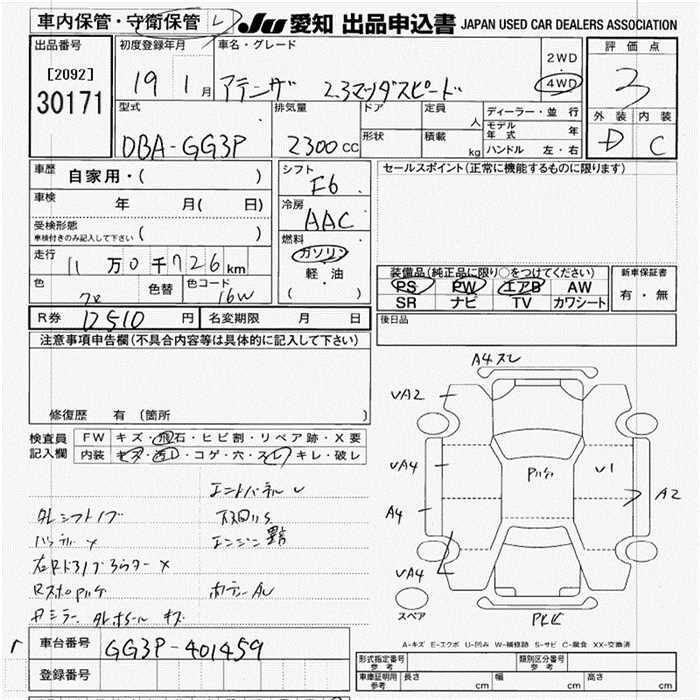 車内保管・守衛保管 L JU 愛知 出品申込書 JAPAN USED CAR DEALERS ASSOCIATION
出品番号 初度登録年月 車名・グレード 評価点
[2092] 19 1月 アテンザ 2.3マツダスピード 2WD 4WD 3
30171
型式 排気量 ドア 定員 人 ディーラー・並行 外装 内装
DBA-GG3P 2300CC 形状 積載 kg モデル年式 年 D C
ハンドル 左・右
車歴 自家用・( ) シフト F6 セールスポイント(正常に機能するものに限ります)
車検 年 月( 日) 冷房 AAC
受検形態 ( )
車検付きのみ記入して下さい
走行 11万0千726km 燃料 ガソリン 装備品(純正品に限り○をつけてください) 新車保証書
色 色替 色コード 16W 軽・油 PS PW エアB AW 有・無
( ) SR ナビ TV カワシート
R券 12510円 名変期限 月 日 後日品
注意事項申告欄(不具合内容等は具体的に記入して下さい)
修復歴 有(箇所 )
検査員 FW キズ・飛石・ヒビ割・リペア跡・X要
記入欄 内装 キズ・汚レ・コゲ・穴・スレ・キレ・破レ
A4スレ
VA2
VA4 V1
A4 A2
VA4
スペア
ハンドル X
エンジン
車台番号 GG3P-401459
登録番号
A-キズ E-エクボ U-凹み W-補修跡 S-サビ C-腐食 XX-交換済
形式指定番号 参考 類別区分番号 参考
車庫証明用 参考 長さ cm 幅 cm 高さ cm